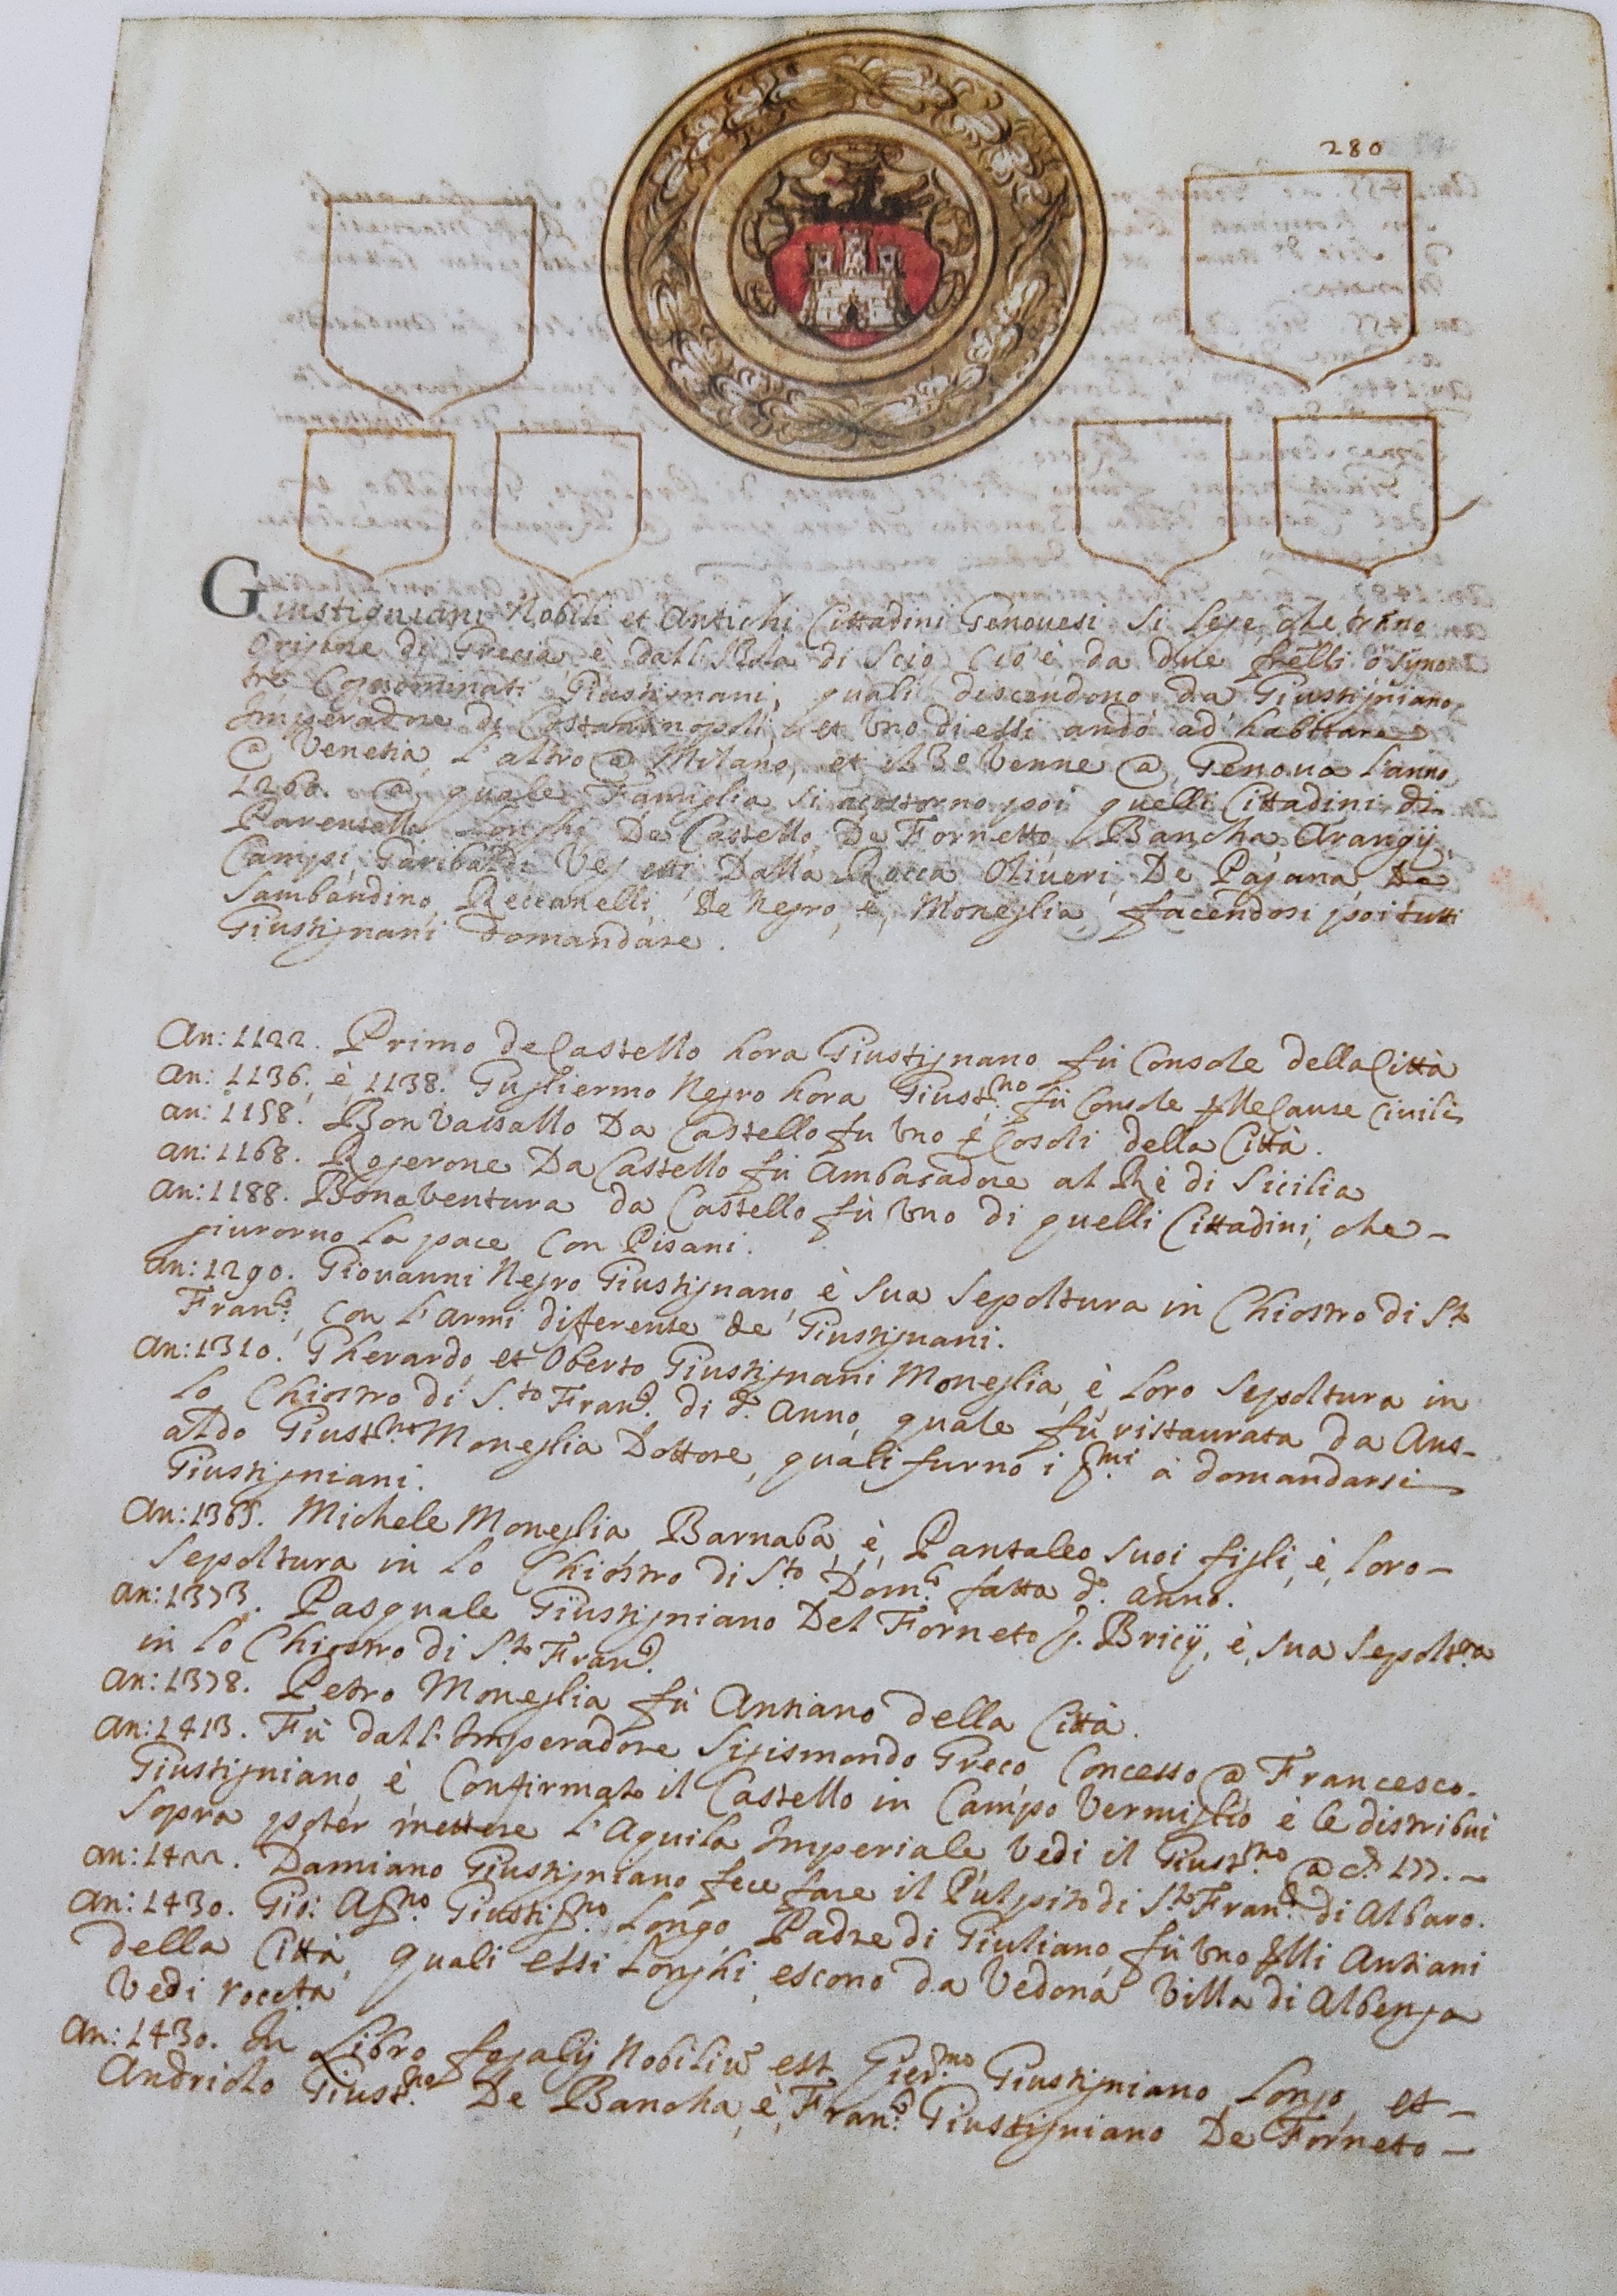 280
Giustigniani Nobili et Antichi Cittadini Genovesi si lege che trano
Origine di Grecia è dall'Isola di Scio, Cio è da due frelli ò sijno
tre Cognominati Giustignani, quali discendono da Giustigniano,
Imperadore di Costantinopoli, et Uno di essi andò ad habittare
@ Venetia, L'altro @ Milano, et il 3º Venne @ Genova L'anno
1260. @ quale Famiglia si acostorno poi quelli Cittadini di
Parentella Longhi De Castello, De Fornetto, Bancha, Arangij,
Campi, Garibaldi Dalla Rocca Oliveri De Pagana, De
Sambandino, Reccanelli, De Negro, è, Moneglia, facendosi poi tutti
Giustignani domandare.
An: 1122. Primo de Castello hora Giustignano fù Console della Città
An: 1136, è 1138. Gugliermo Negro hora Giust.no fù Console Cause Civili
An: 1158. Bon Vassallo Da Castello fu Uno Cosoli della Città.
An: 1168. Rogerone Da Castello fù Ambasadore al Rè di Sicilia
An: 1188. Bonaventura da Castello fù Uno di quelli Cittadini, che -
giurorno La pace Con Pisani.
An: 1290. Giovanni Negro Giustignano, è Sua Sepoltura in Chiostro di S.to
Fran.co, Con L'armi differente de Giustignani.
An: 1310. Gherardo, et Oberto Giustignani Moneglia, è Loro Sepoltura in
Lo Chiostro di S.to Fran.co di d.º Anno, quale fù ristaurata da Ans-
aldo Giust.no Moneglia Dottore, quali furno i p.mi à domandarsi
Giustigniani.
An: 1365. Michele Moneglia, Barnabà, è, Pantaleo Suoi figli, è, Loro -
Sepoltura in Lo Chiostro di S.to Dom.co fatta d.º anno.
An: 1373. Pasquale Giustigniano Del Forneto q. Bricij, è, Sua Sepolt.ra
in Lo Chiostro di S.to Fran.co
An: 1378. Petro Moneglia fù Antiano della Città.
An: 1413. Fù dall'Imperadore Sigismondo Greco, Concesso @ Francesco
Giustigniano, è Confirmato il Castello in Campo Vermiglio è le distribui
Sopra poter mettere L'Aquila Imperiale Vedi il Giust.no @ c.te 177. -
An: 1422. Damiano Giustigniano fece fare il Pulpito di S.to Fran.co di Albaro.
An: 1430. Gio: Ag.no Giustig.no Longo, Padre di Giuliano, fù Uno Antiani
della Città, quali essi Longhi, escono da Vedona Villa di Albenga
Vedi
An: 1430. In Libro Nobiliũ est Gier.mo Giustigniano, Longo, et -
Andriolo Giust.no De Bancha, è, Fran.co Giustigniano De Forneto -